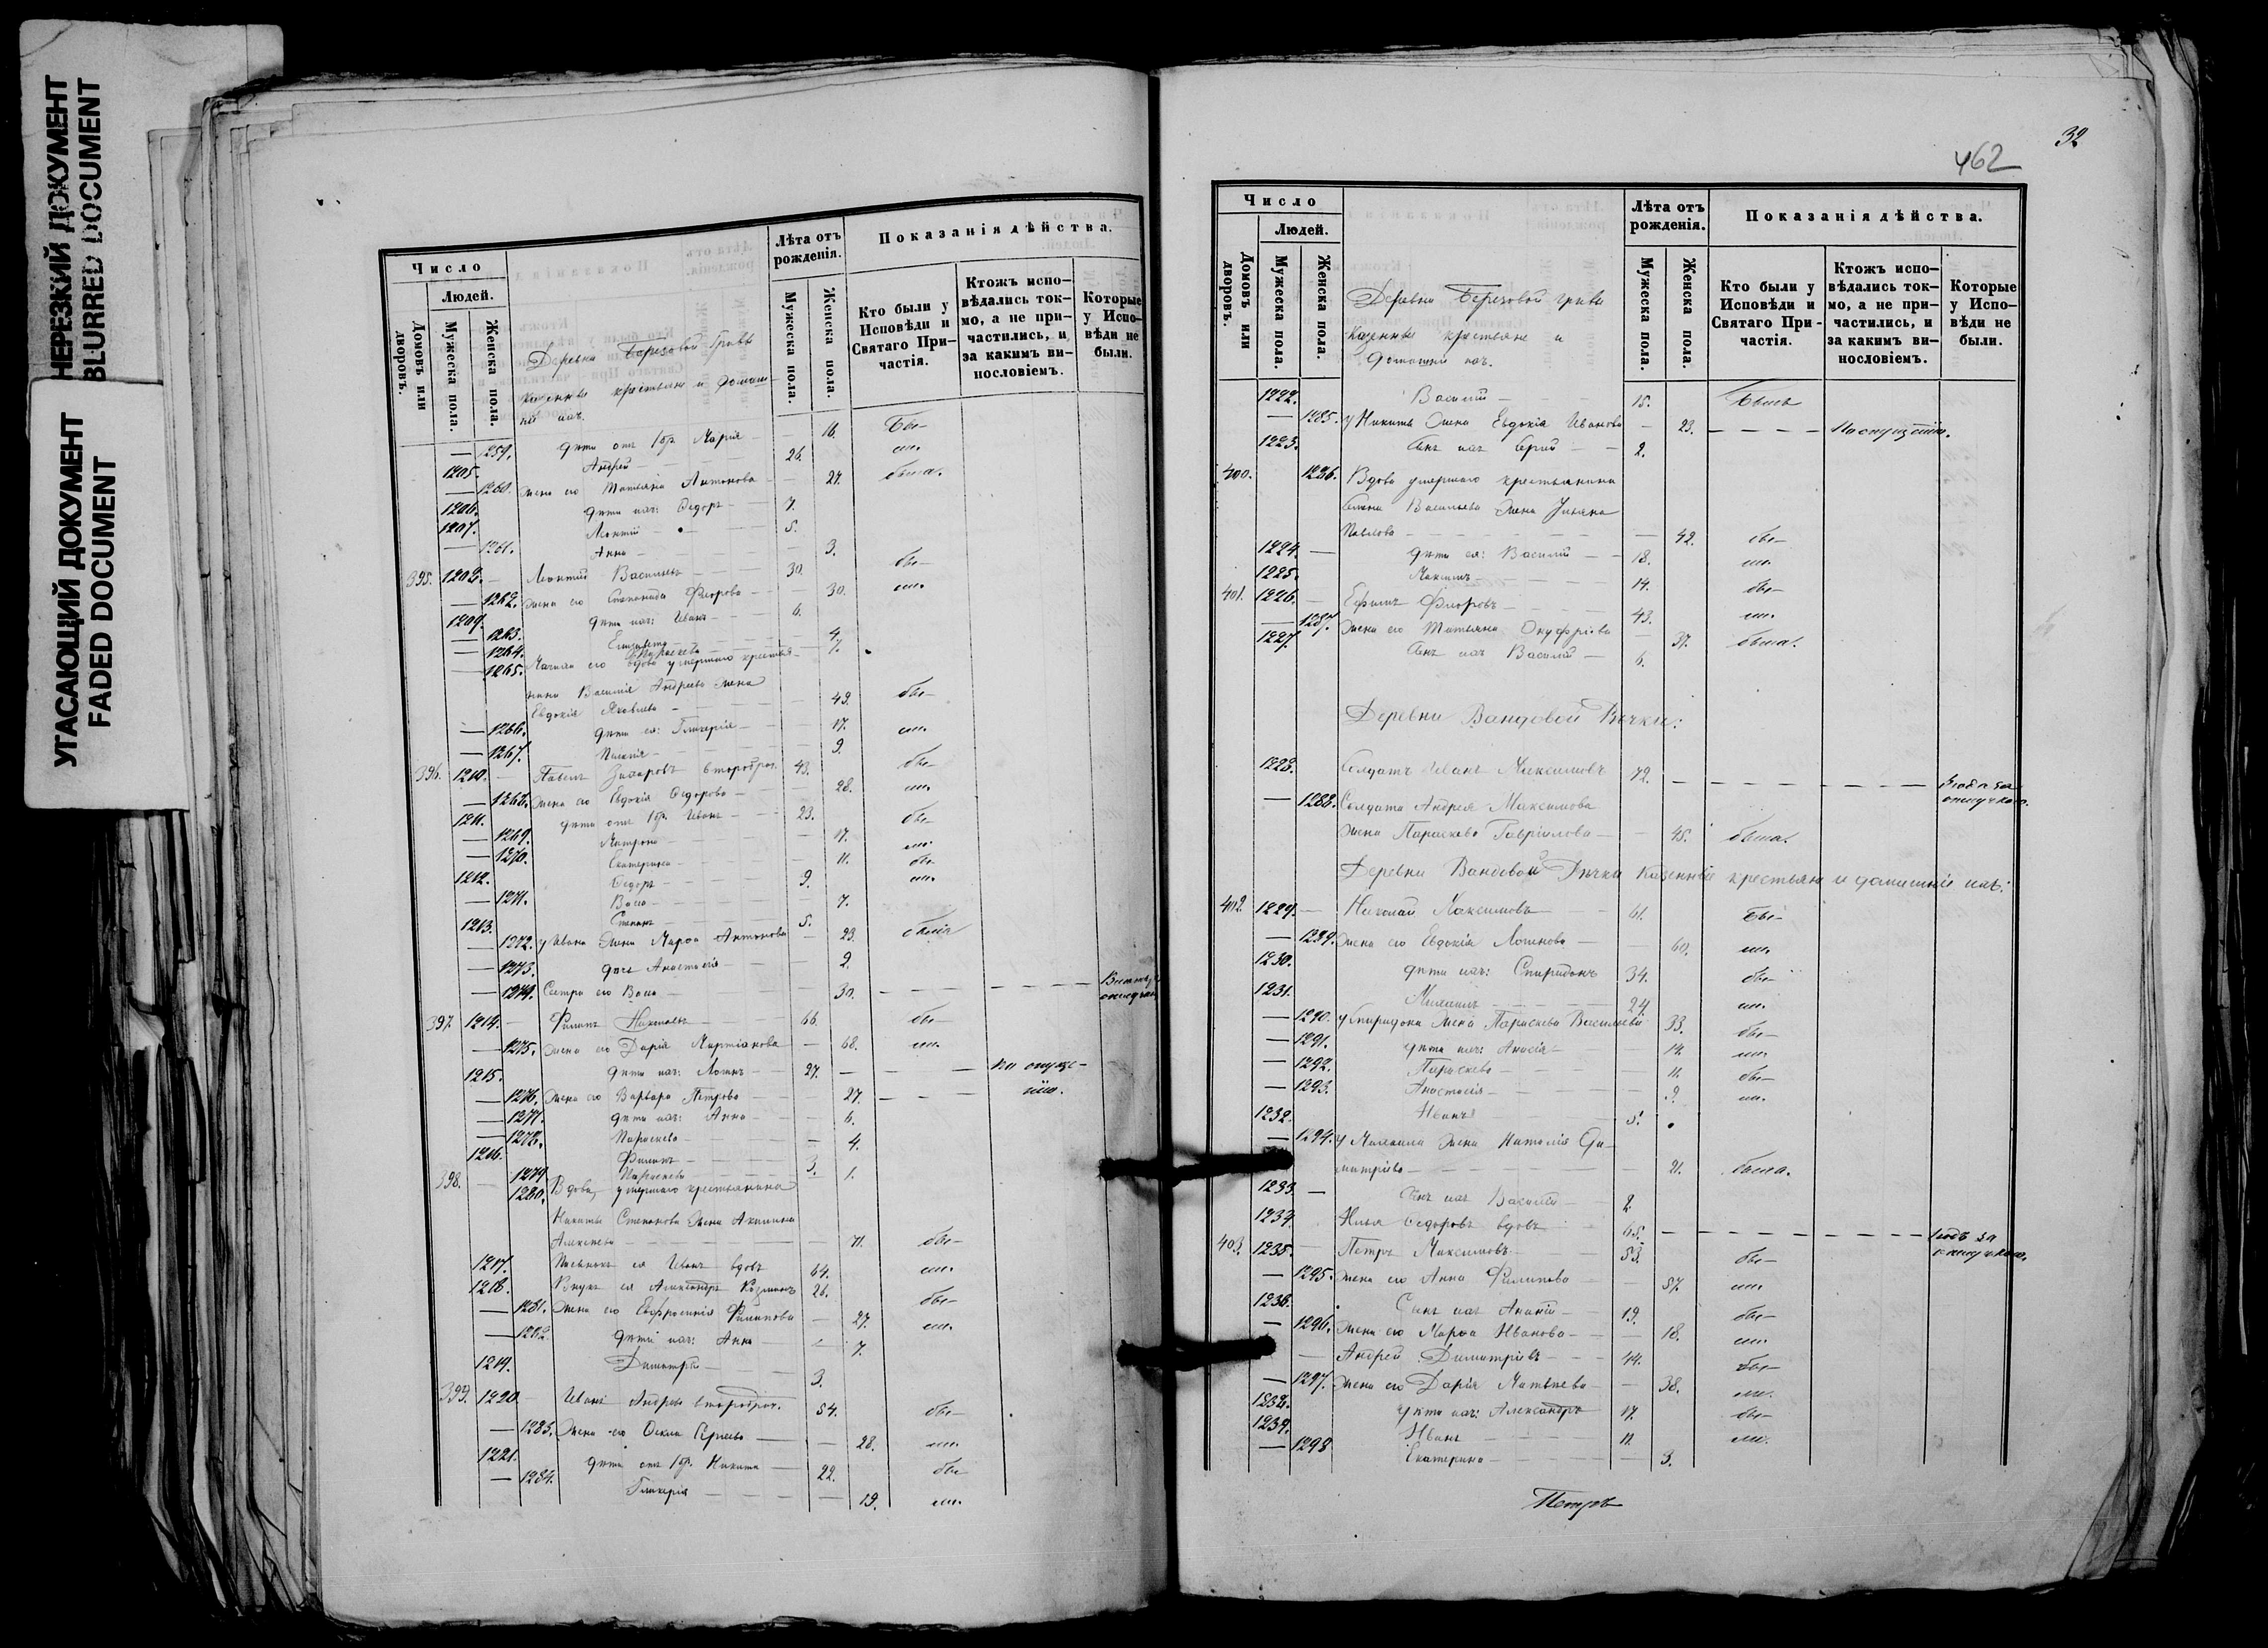 НЕРЕЗКИЙ ДОКУМЕНТ
BLURRED DOCUMENT
УГАСАЮЩИЙ ДОКУМЕНТ
FADED DOCUMENT
Число
Людей.
Домовъ или дворовъ.
Мужеска пола.
Женска пола.
Деревни Березовой Гривы
казенные крестьяне и домаш-
ніе ихъ.
Лѣта отъ рожденія.
Мужеска пола.
Женска пола.
Показанія дѣйства.
Кто были у Исповѣди и Святаго При-частія.
Ктожъ испо-вѣдались ток-мо, а не при-частились, и за какимъ ви-нословіемъ.
Которые у Испо-вѣди не были.
1259. дѣти отъ 1 бр. Марія 16. бы-
1205. Андрей 26. ли.
1260. Жена его Татьяна Антонова 27. была.
1206. дѣти ихъ: Ѳедоръ 7.
1207. Леонтій 5.
1261. Анна 3.
395. 1208. Леонтій Васильевъ 30. бы-
1262. Жена его Степанида Флорова 30. ли.
1209. дѣти ихъ: Иванъ 6.
1263. Елизавета 4.
1264. Параскева 1.
1265. Мачиха его вдова умершаго крестья-
нина Василія Андреева жена
Евдокія Яковлева 49. бы-
1266. дѣти ея: Гликерія 17. ли.
1267. 9.
396. 1210. Павелъ Захаровъ второбрач. 43. бы-
1268. Жена его Евдокія Ѳедорова 28. ли.
1211. дѣти отъ 1 бр. Иванъ 23. бы-
1269. Матрона 17. ли.
1270. Екатерина 11. бы-
1212. Ѳедоръ 9. ли.
1271. Васса 7.
1213. Степанъ 5.
1272. у Ивана жена Марѳа Антонова 23. была
1273. дочь Анастасія 2.
1274. Сестра его Васса 30.
397. 1214. Филипъ 66. бы-
1275. Жена его Дарія Мартіанова 68. ли.
1215. дѣти ихъ: Логинъ 27. по опуще-
1276. Жена его Варвара Петрова 27. нію.
1277. дѣти ихъ: Анна 6.
1278. Параскева 4.
1216. Филипъ 3.
1279. Параскева 1.
398. 1280. Вдова умершаго крестьянина
Никиты Степанова жена Акилина
Алексѣева 71. бы-
1217. Пасынокъ ея Иванъ вдовъ 64. ли.
1218. Внукъ ея Александръ Козминъ 26. бы-
1281. Жена его Евфросинія Филипова 27. ли.
1282. дѣти ихъ: Анна 7.
1219. Димитрій 3.
399. 1220. Иванъ Андреевъ второбрач. 54. бы-
1283. Жена его Ѳекла Сергеева 28. ли.
1221. дѣти отъ 1 бр. Никита 22. бы-
1284. Гликерія 19. ли.
32
462
Число
Людей.
Домовъ или дворовъ.
Мужеска пола.
Женска пола.
Деревни Березовой гривы
казенные крестьяне и
домашніе ихъ.
Лѣта отъ рожденія.
Мужеска пола.
Женска пола.
Показанія дѣйства.
Кто были у Исповѣди и Святаго При-частія.
Ктожъ испо-вѣдались ток-мо, а не при-частились, и за какимъ ви-нословіемъ.
Которые у Испо-вѣди не были.
1222. Василій 15. Былъ
1285. у Никиты жена Евдокія Иванова 23. По опущенію.
1223. Сынъ ихъ Сергій 2.
400. 1286. Вдова умершаго крестьянина
Васильева жена Ульяна
Павлова 42. бы-
1224. дѣти ея: Василій 18. ли.
1225. Максимъ 14. бы-
401. 1226. Ефимъ Флоровъ 43. ли.
1287. Жена его Татьяна Онуфріева 37. была.
1227. Сынъ ихъ Василій 6.
Деревни Вандовой Рѣчки:
1228. Солдатъ Иванъ Максимовъ 72.
1288. Солдата Андрея Максимова
жена Параскева Гавріилова 45. была.
Деревни Вандовой Рѣчки казенные крестьяне и домашніе ихъ:
402. 1229. Николай Максимовъ 61. бы-
1289. Жена его Евдокія Логинова 60. ли.
1230. дѣти ихъ: Спиридонъ 34. бы-
1231. Михаилъ 24. ли.
1290. у Спиридона жена Параскева Васильева 33. бы-
1291. дѣти ихъ: Анисія 14. ли.
1292. Параскева 11. бы-
1293. Анастасія 9. ли.
1232. Иванъ 5.
1294. у Михаила жена Наталія Ди-
митріева 21. была.
1233. Сынъ ихъ Василій 2.
1234. Илья Ѳедоровъ вдовъ 65.
403. 1235. Петръ Максимовъ 53. бы-
1295. Жена его Анна Филипова 57. ли.
1236. Сынъ ихъ Ананій 19. бы-
1296. Жена его Марѳа Иванова 18. ли.
Андрей Димитріевъ 44. бы-
1297. Жена его Дарія Матвѣева 38. ли.
1238. дѣти ихъ: Александръ 17. бы-
1239. Иванъ 11. ли.
1298 Екатерина 3.
Петръ